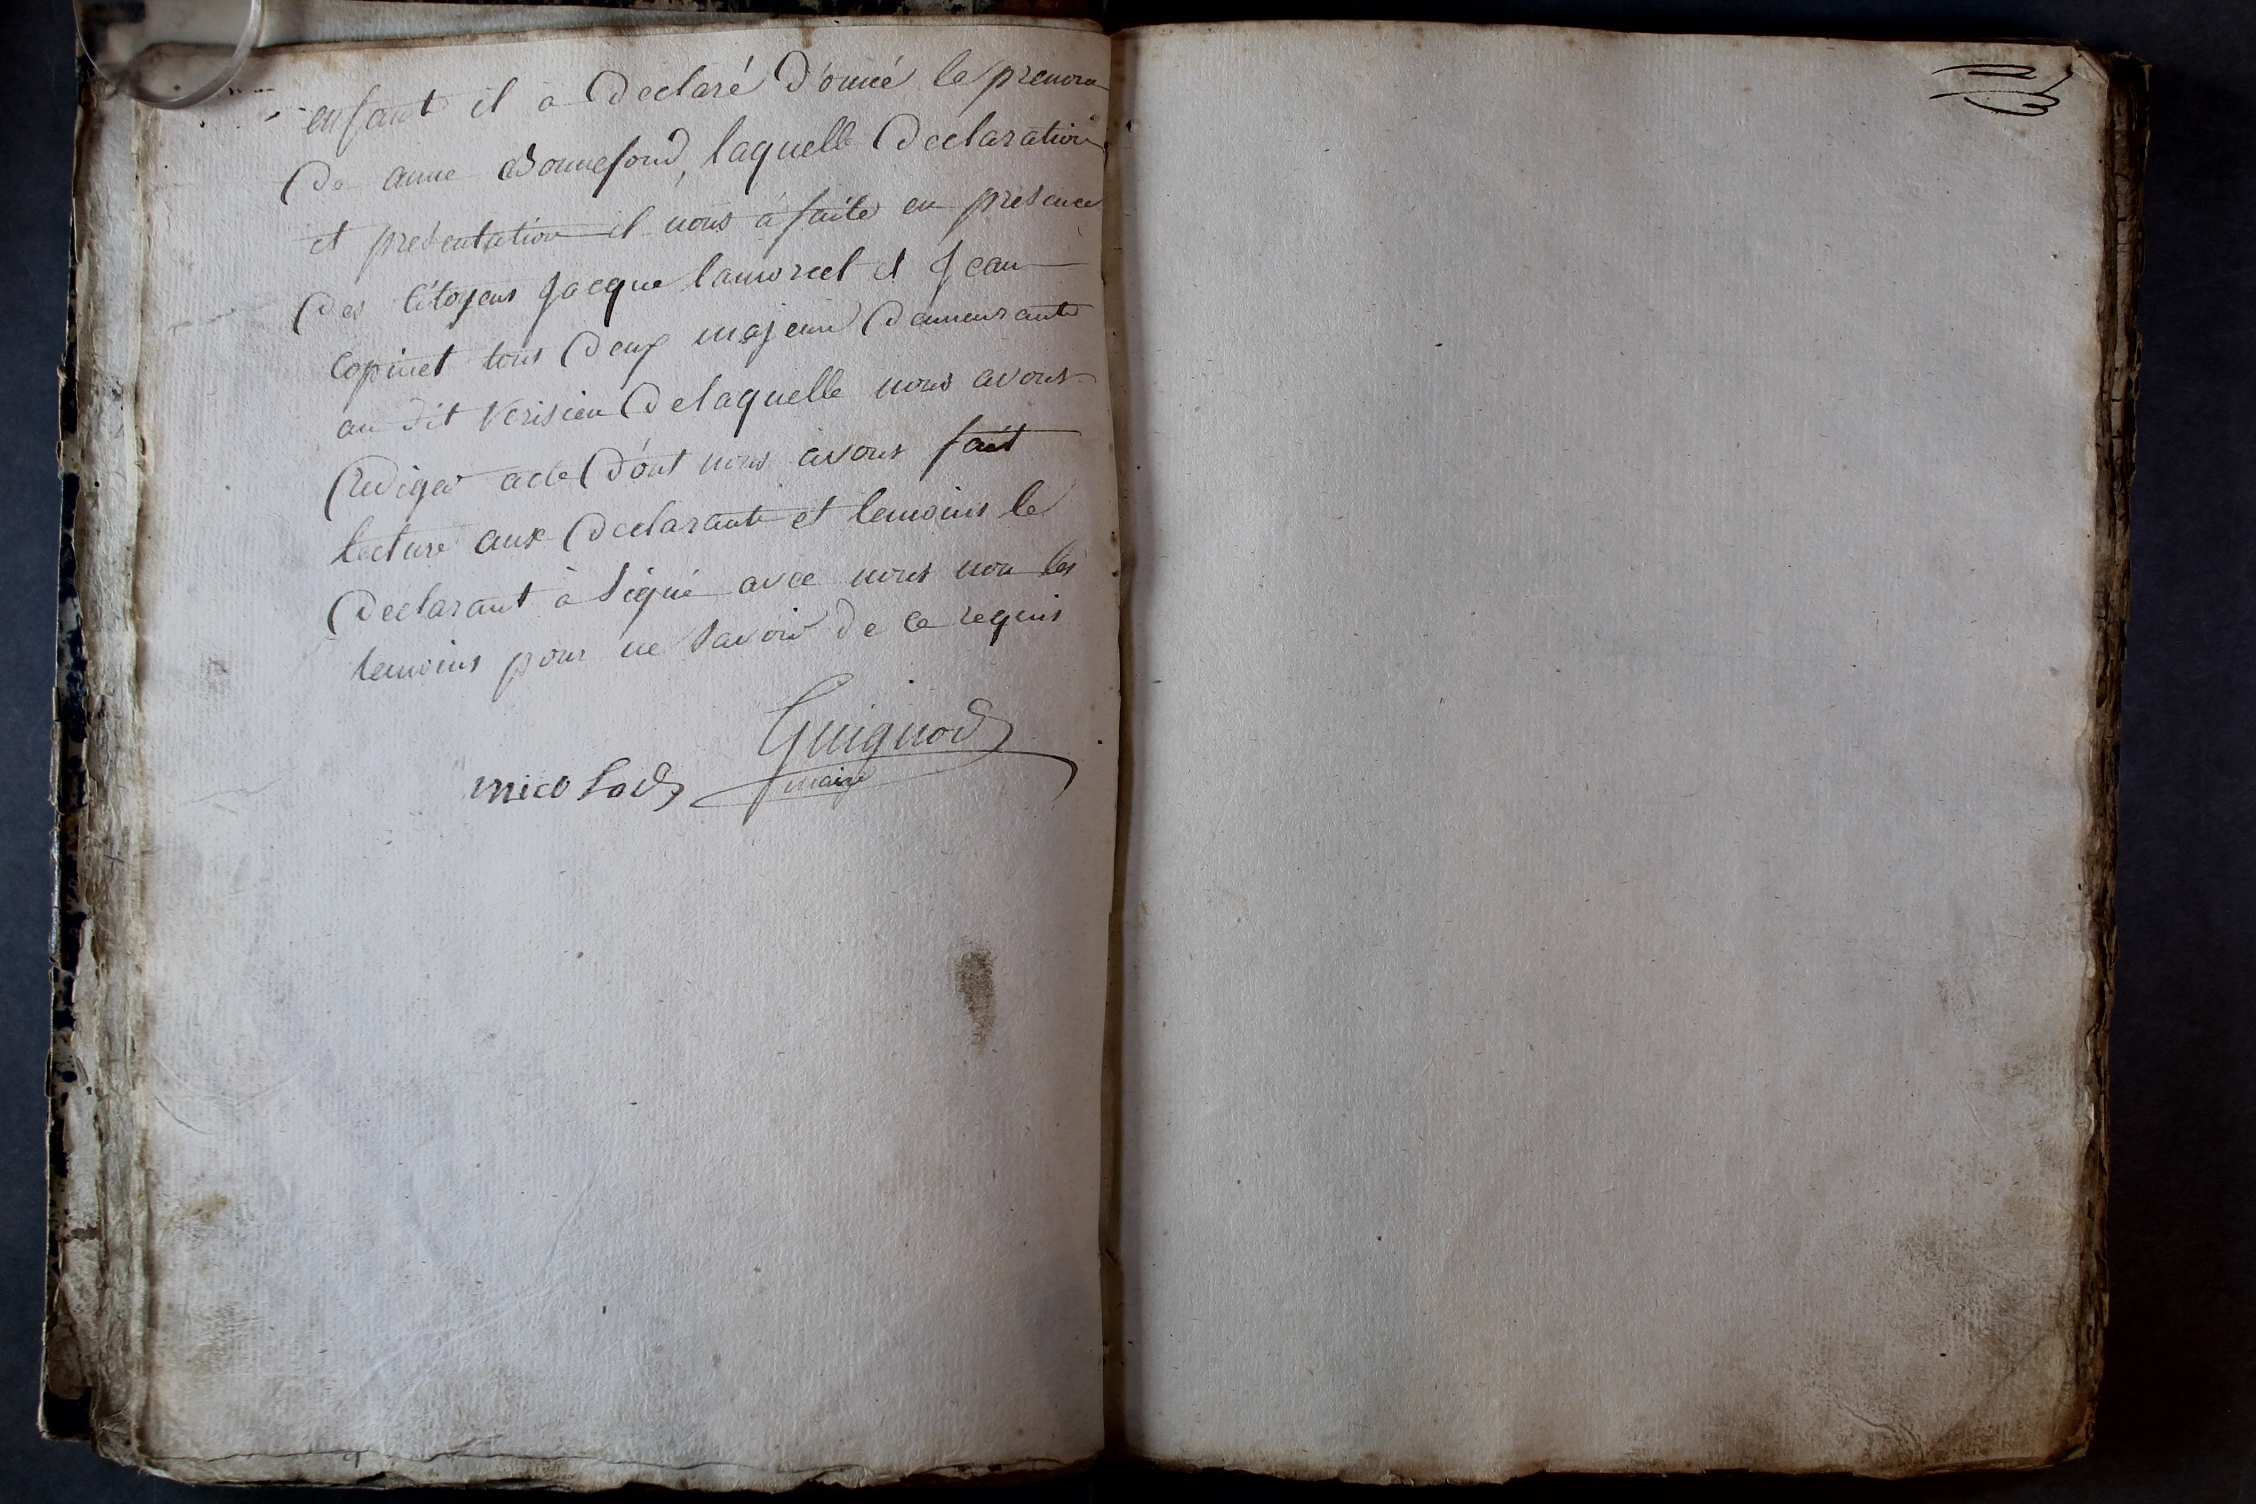 enfant il à declaré d'onné le prenom
de anne Bonnefond, laquelle declaration
et presentation il nous à faite en presence
des Citoyens Jacque lamorcet et Jean
Copinet tous deux majeur demeurants
au dit Verisieu de laquelle nous avons
Rediger acte d'ont nous avons fait
lecture aux declarants et temoins le
declarant à signé avec nous non les
temoins pour ne savoir de ce requis
Guignod
nicolod
maire